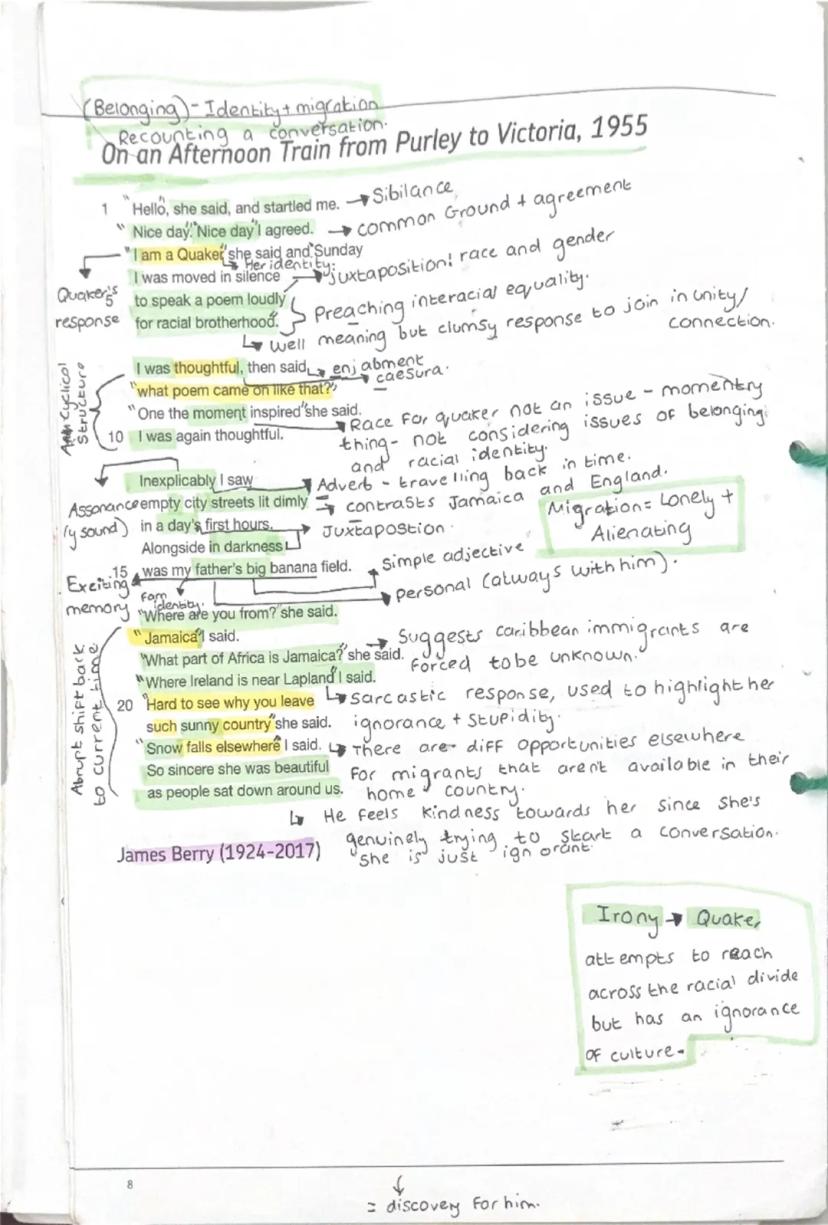 (Belonging) - Identity + migration
Recounting a conversation.
On an Afternoon Train from Purley to Victoria, 1955
1 "Hello", she said, and startled me. → Sibilance
"Nice day." "Nice day" I agreed. → common Ground + agreement
"I am a Quaker," she said and "Sunday
↳ Her identity:
I was moved in silence → juxtaposition! race and gender
5 to speak a poem loudly
for racial brotherhood."
Quaker's response
Preaching interacial equality.
↳ well meaning but clumsy response to join in unity/
connection.
I was thoughtful, then said ↳ enjabment
caesura.
"what poem came on like that?"
"One the moment inspired" she said.
10 I was again thoughtful.
Cyclical
Structure
Race for quaker not an issue - momentry
thing - not considering issues of belonging
and racial identity.
Inexplicably I saw
Adverb - travelling back in time.
empty city streets lit dimly
contrasts Jamaica and England.
in a day's first hours.
Juxtapostion.
Alongside in darkness
15 was my father's big banana field.
Assonance
(y sound)
Migration = Lonely +
Alienating
simple adjective
personal (always with him).
Exciting
memory
identity.
"Where are you from?" she said.
"Jamaica" I said.
"What part of Africa is Jamaica?" she said.
→ Suggests caribbean immigrants are
forced to be unknown.
"Where Ireland is near Lapland" I said.
20 "Hard to see why you leave
such sunny country" she said.
↳ Sarcastic response, used to highlight her
ignorance + stupidity.
"Snow falls elsewhere" I said.
So sincere she was beautiful
as people sat down around us.
Abrupt shift back
to current time
↳ There are diff opportunities elsewhere
for migrants that arent available in their
home country.
↳ He feels kindness towards her since she's
genuinely trying to start a conversation.
she is just ignorant.
James Berry (1924-2017)
Irony → Quaker
attempts to reach
across the racial divide
but has an ignorance
of culture.
8
↓
= discovery for him.